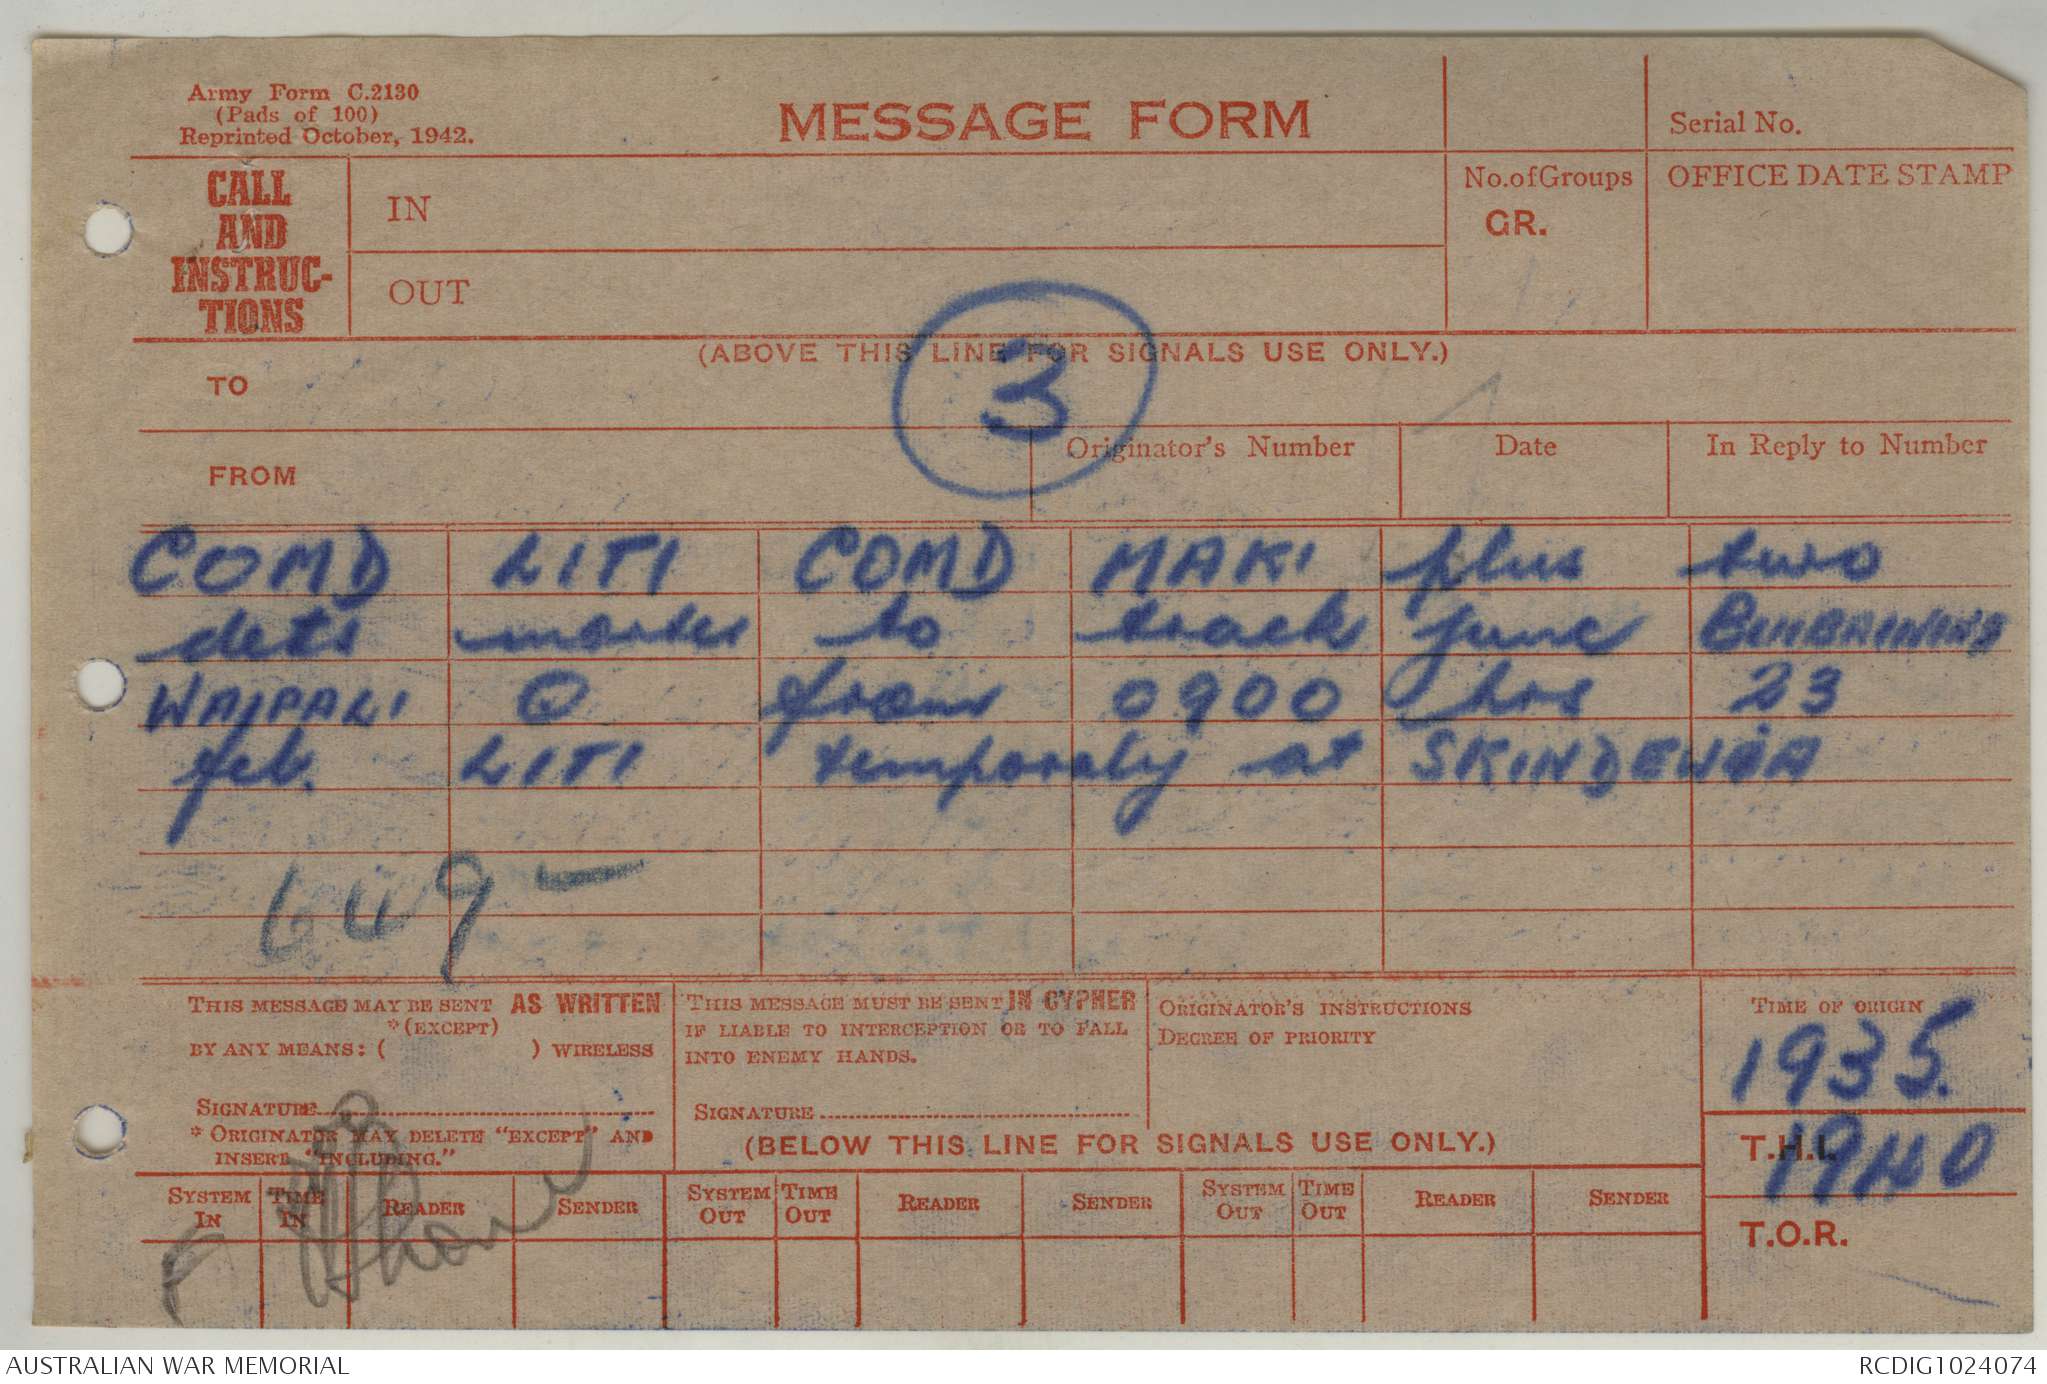 Army Form C.2130
(Pads of 100)
Reprinted October, 1942.
MESSAGE FORM
Serial No.
CALL
AND
INSTRUC-
TIONS
IN
OUT
No. of Groups
GR.
OFFICE DATE STAMP
(ABOVE THIS LINE FOR SIGNALS USE ONLY.)
3
TO
FROM
Originator's Number
Date
In Reply to Number
COMD LITI COMD MAKI plus two
dets to track junc
WAIPALI Q from 0900 hrs 23
feb. LITI temporaly at SKINDEWOA
649 —
THIS MESSAGE MAY BE SENT AS WRITTEN
*(EXCEPT)
BY ANY MEANS: ( ) WIRELESS
SIGNATURE
* ORIGINATOR MAY DELETE "EXCEPT" AND
INSERT "INCLUDING."
THIS MESSAGE MUST BE SENT IN CYPHER
IF LIABLE TO INTERCEPTION OR TO FALL
INTO ENEMY HANDS.
SIGNATURE
ORIGINATOR'S INSTRUCTIONS
DEGREE OF PRIORITY
TIME OF ORIGIN
1935.
(BELOW THIS LINE FOR SIGNALS USE ONLY.)
T.H.I.
1940
T.O.R.
SYSTEM IN TIME IN READER SENDER SYSTEM OUT TIME OUT READER SENDER SYSTEM OUT TIME OUT READER SENDER
AUSTRALIAN WAR MEMORIAL
RCDIG1024074